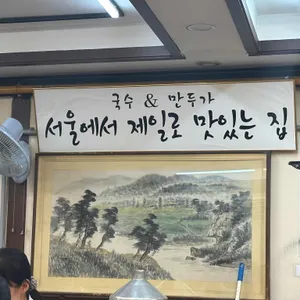 국수 & 만두가
서울에서 제일로 맛있는 집